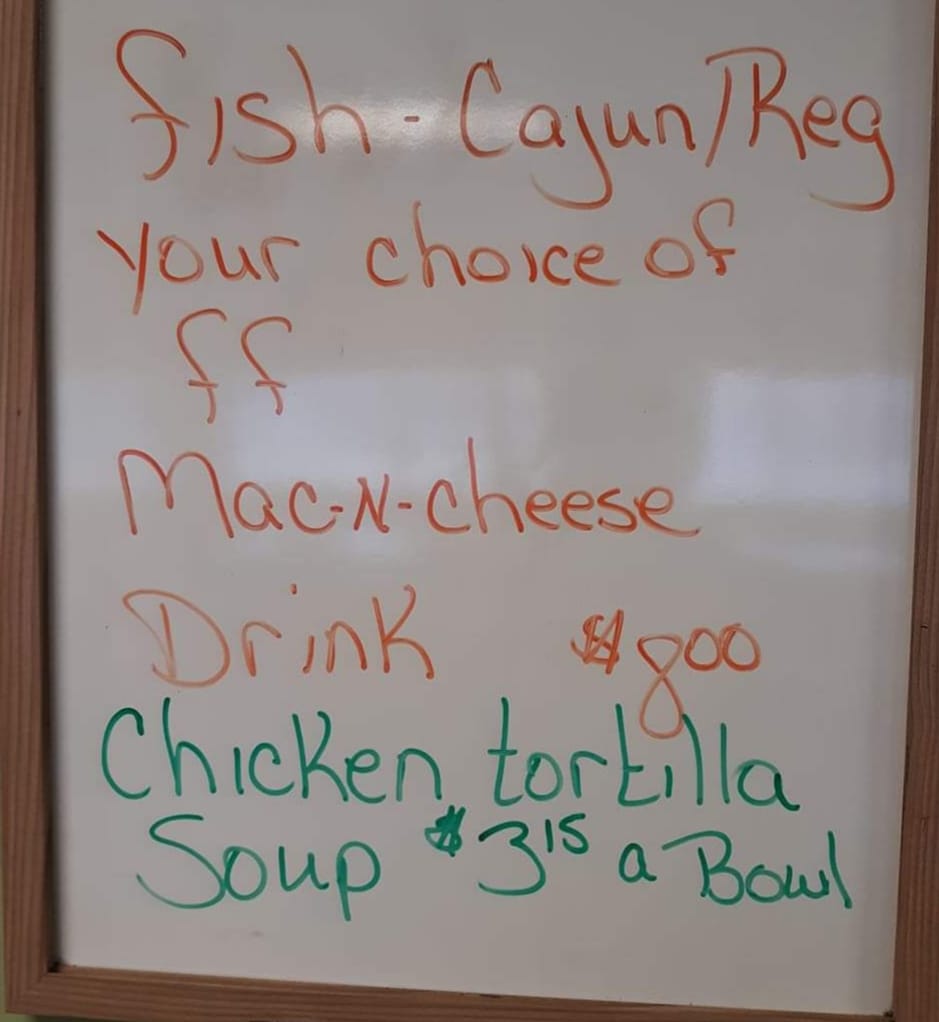 fish - Cajun/Reg
your choice of
ff
Mac-N-cheese
Drink $800
Chicken tortilla
Soup $315 a Bowl